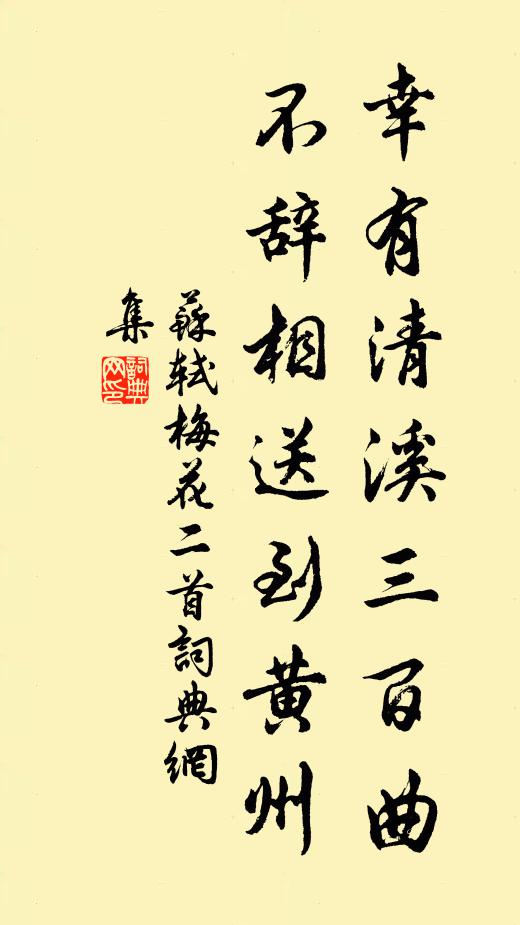 幸有清溪三百曲
不辞相送到黄州
蘇轼梅花二首詞典網
集
詞典
网印